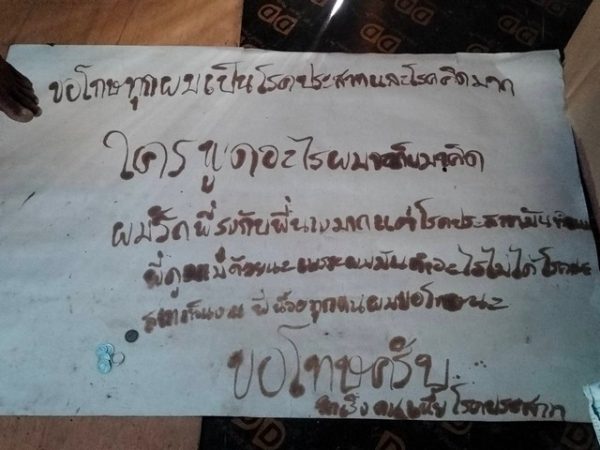 ขอโทษทุกผมเป็นโรคประสาทและโรคคิดมาก
ใครพูดอะไรผมจะเก็บมาคิด
ผมรักพี่รงกับพี่นางมากแต่โรคประสาทมัน
พี่ดูแม่ด้วยนะเพราะผมมันทำอะไรไม่ได้
พี่น้องทุกคนผมขอโทษนะ
ขอโทษครับ
โรคประสาท